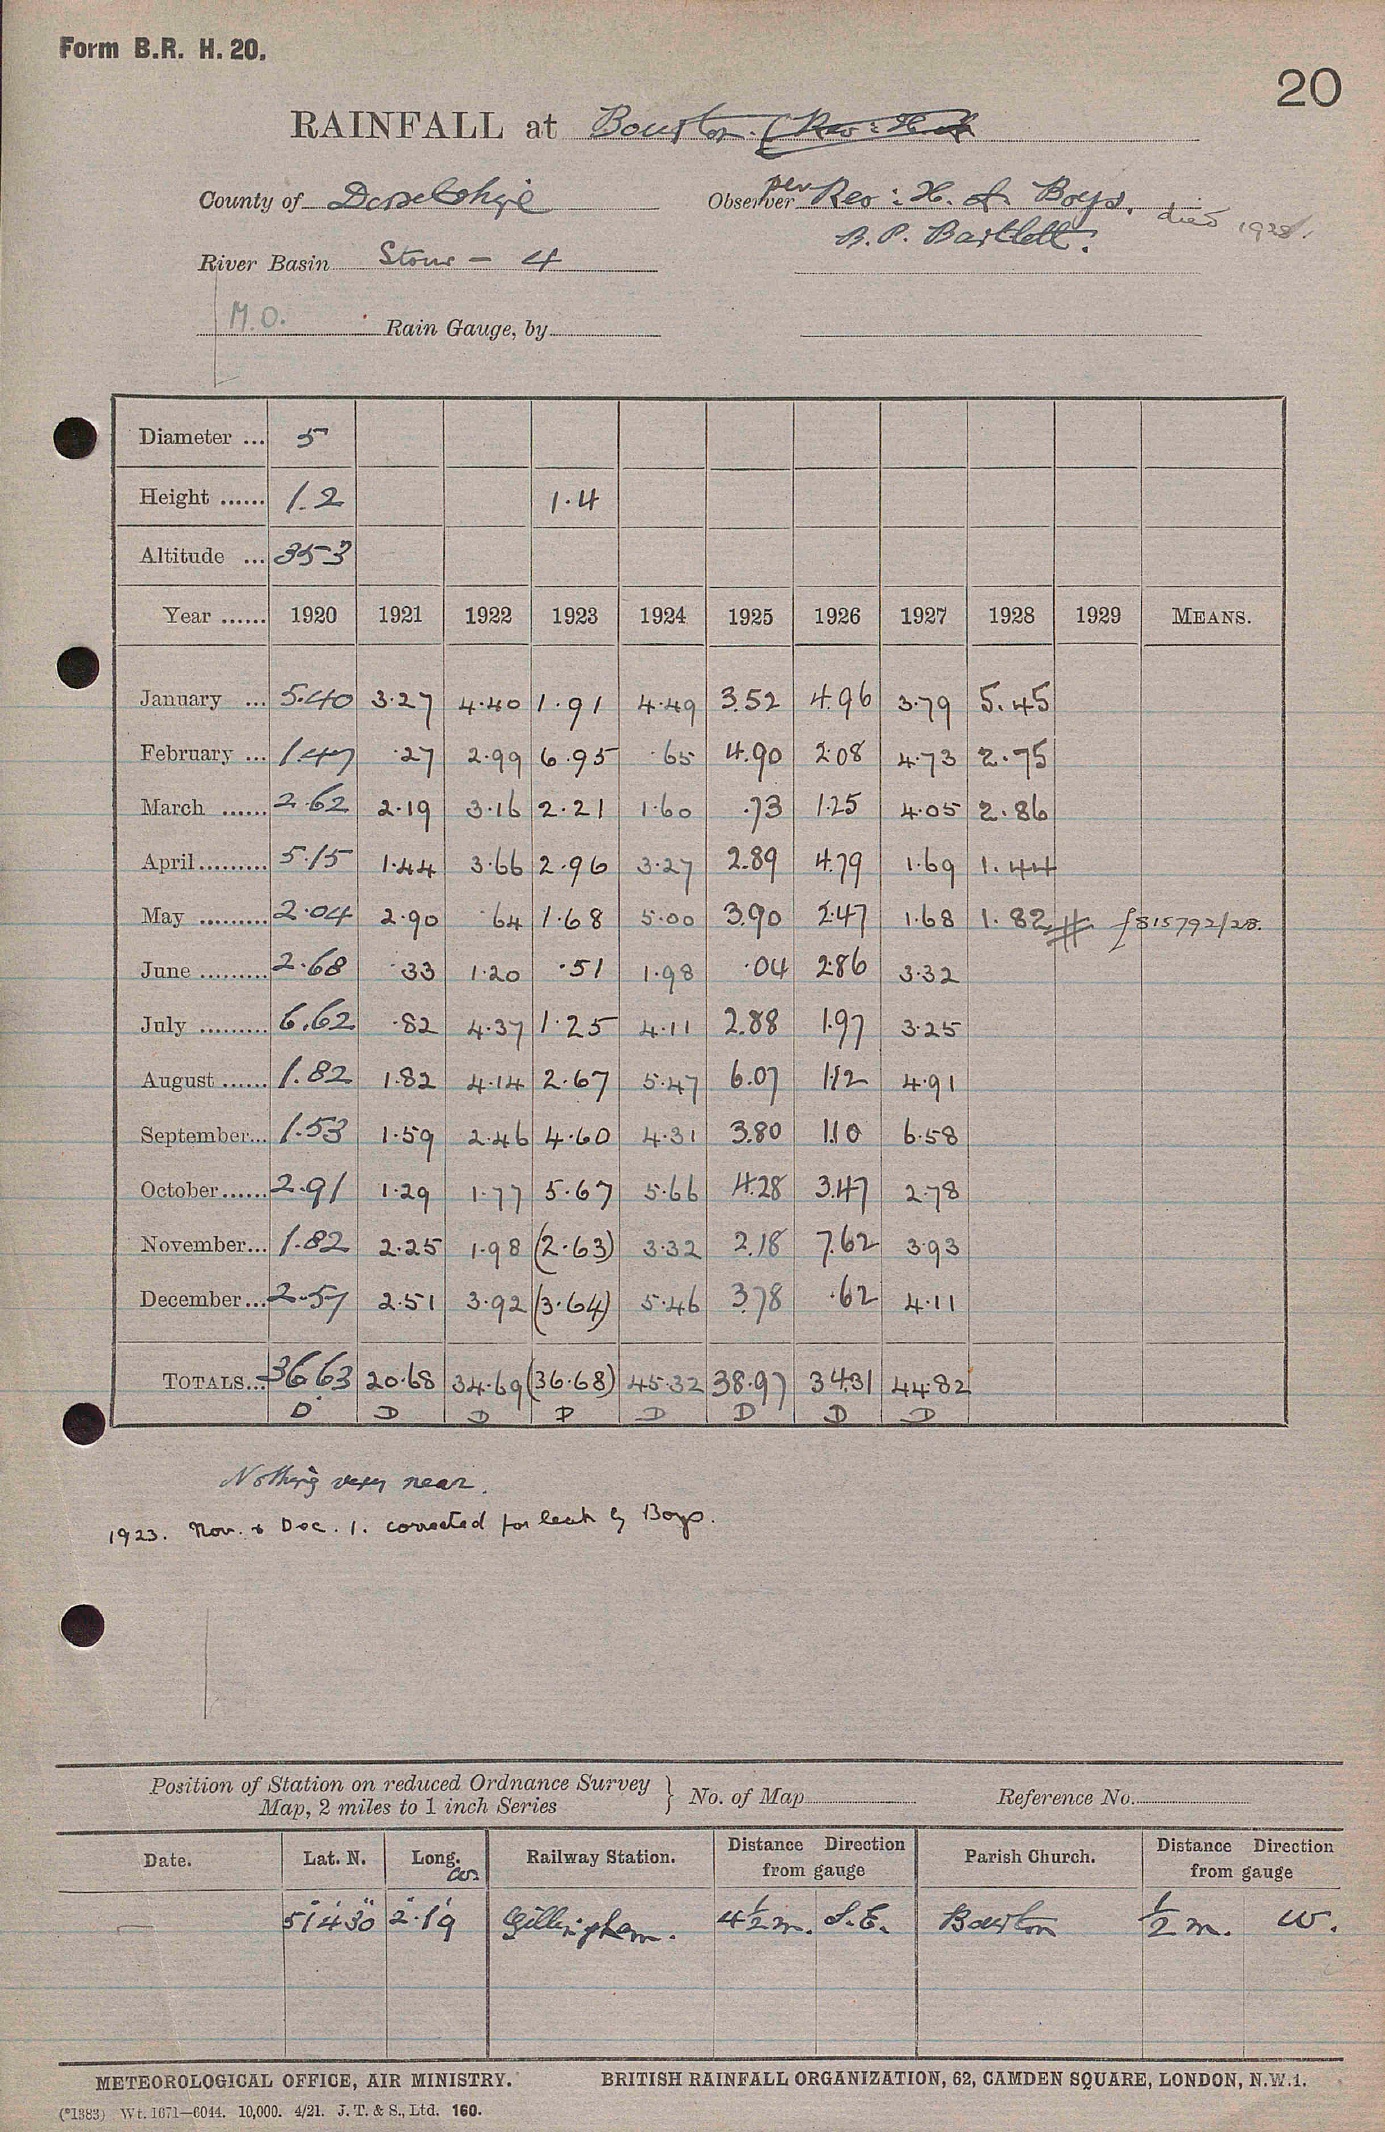 Form B.R. H. 20.
20
RAINFALL at Bourton. (Rev: H. A
County of Dorsetshire Observer per Rev: H. A. Boys. died 1928.
B. P. Bartlett.
River Basin Stour - 4
M.O. Rain Gauge, by
Diameter ... 5
Height ...... 1.2 1.4
Altitude ... 353
Year ...... 1920 1921 1922 1923 1924 1925 1926 1927 1928 1929 MEANS.
January ... 5.40 3.27 4.40 1.91 4.49 3.52 4.96 3.79 5.45
February ... 1.47 .27 2.99 6.95 .65 4.90 2.08 4.73 2.75
March ...... 2.62 2.19 3.16 2.21 1.60 .73 1.25 4.05 2.86
April ......... 5.15 1.44 3.66 2.96 3.27 2.89 4.79 1.69 1.44
May ......... 2.04 2.90 .64 1.68 5.00 3.90 2.47 1.68 1.82 # f815792/28.
June ......... 2.68 .33 1.20 .51 1.98 .04 2.86 3.32
July ......... 6.62 .82 4.37 1.25 4.11 2.88 1.97 3.25
August ...... 1.82 1.82 4.14 2.67 5.47 6.07 1.12 4.91
September... 1.53 1.59 2.46 4.60 4.31 3.80 1.10 6.58
October ...... 2.91 1.29 1.77 5.67 5.66 4.28 3.47 2.78
November... 1.82 2.25 1.98 (2.63) 3.32 2.18 7.62 3.93
December ... 2.57 2.51 3.92 (3.64) 5.46 3.78 .62 4.11
TOTALS... 36.63 20.68 34.69 (36.68) 45.32 38.97 34.31 44.82
D D D D D D D D
Nothing very near.
1923. Nov. & Dec. 1. corrected for leak by Boys.
Position of Station on reduced Ordnance Survey
Map, 2 miles to 1 inch Series } No. of Map Reference No.
Date. Lat. N. Long. W Railway Station. Distance Direction from gauge Parish Church. Distance Direction from gauge
51° 4' 30" 2° 19' Gillingham. 4½ m. S.E. Bourton ½ m. W.
METEOROLOGICAL OFFICE, AIR MINISTRY. BRITISH RAINFALL ORGANIZATION, 62, CAMDEN SQUARE, LONDON, N.W.1.
(*1383) Wt. 1671—6044. 10,000. 4/21. J. T. & S., Ltd. 160.